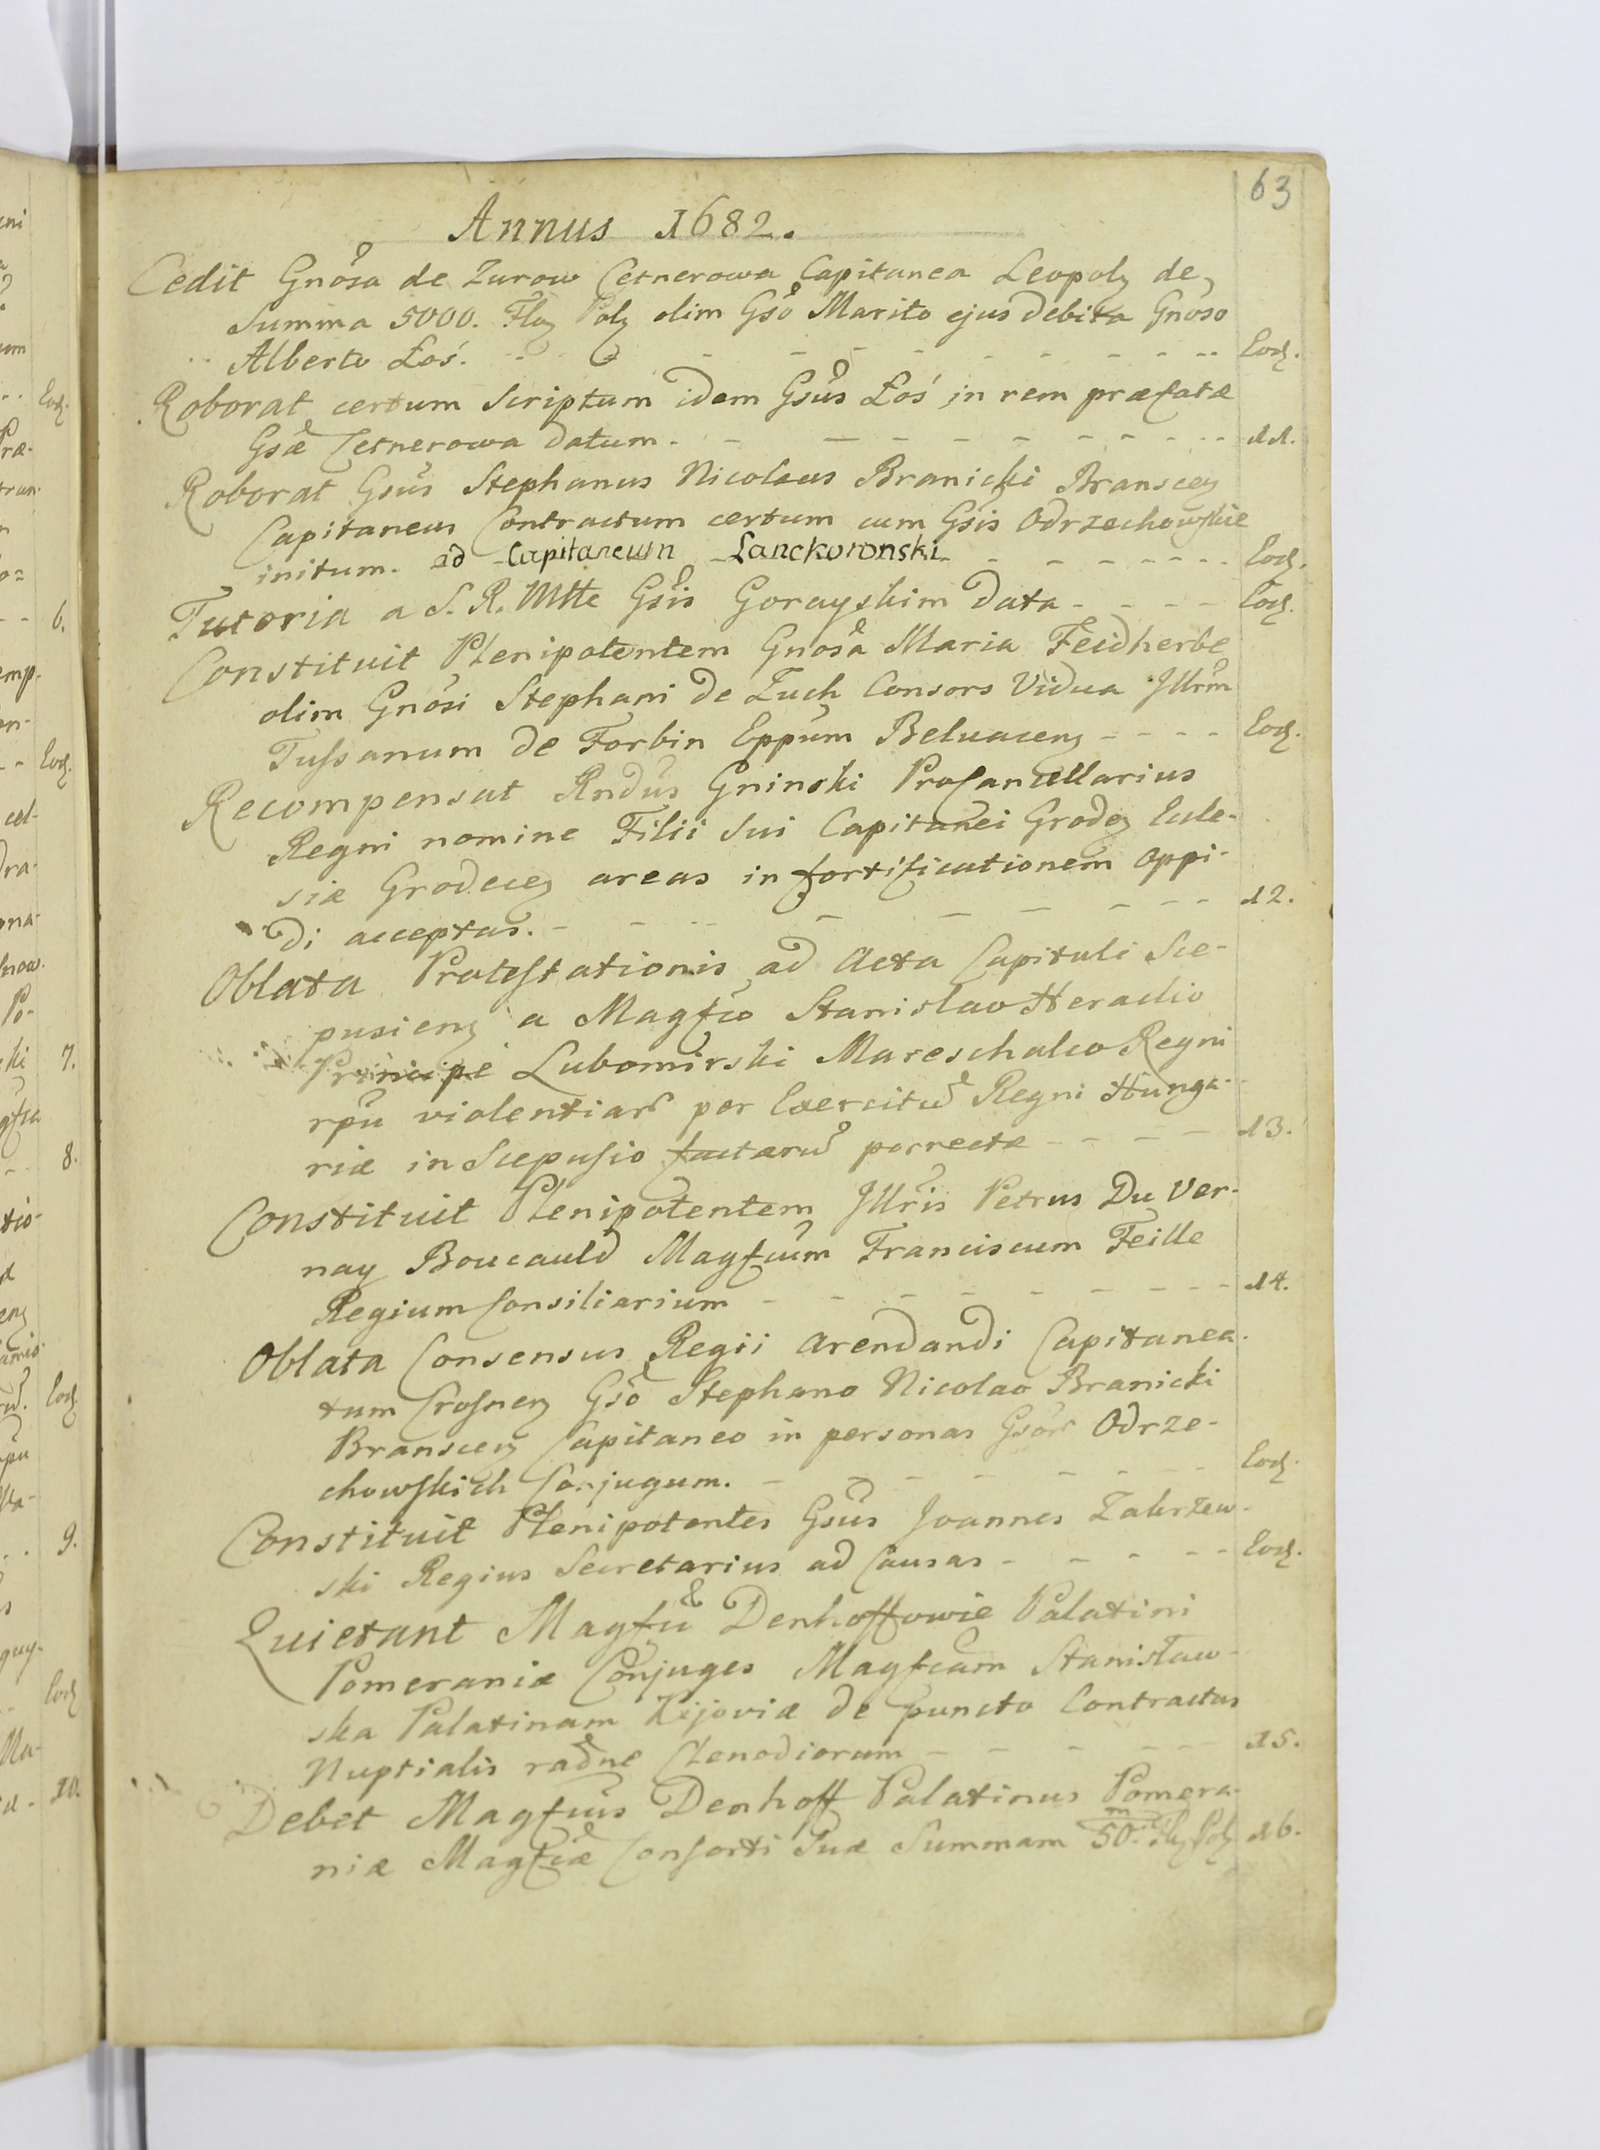 63
Annus 1682.
Cedit Gnosa de Zurow Cetnerowa Capitanea Leopolz de
Summa 5000. Floz Polz olim Gso Marito ejus debita Gnoso
Alberto Łoś. Eodz.
Roborat certum Scriptum idem Gsus Łoś in rem præfatæ
Gsæ Cetnerowa datum. 11.
Roborat Gsus Stephanus Nicolaus Branicki Branscenz
Capitaneus Contractum certum cum Gsis Odrzechowskie
initum. ad Capitaneum Lanckoronski Eodz.
Tutoria a S. R. Mtte Gsis Gorayskim data Eodz.
Constituit Plenipotentem Gnosa Maria Feidherbe
olim Gnosi Stephani de Zuch Consors Vidua Jllrm
Tussanum de Forbin Eppum Beluacenz Eodz.
Recompensat Rndus Gninski ProCancellarius
Regni nomine Filii sui Capitanei Grodez Eccle-
siæ Grodecez areas in fortificationem oppi-
di acceptas. 12.
Oblata Protestationis ad Acta Capituli Sce-
pusienz a Magfco Stanislao Heraclio
Principe Lubomirski Mareschalco Regni
rpu violentiar per Exercitu Regni Hunga-
riæ in Scepusio factaru porrectæ 13.
Constituit Plenipotentem Jllris Petrus Du Ver-
nay Boucauld Magfcum Franciscum Feille
Regium Consiliarium 14.
Oblata Consensus Regii arendandi Capitanea-
tum Crosnenz Gso Stephano Nicolao Branicki
Branscenz Capitaneo in personas Gsor Odrze-
chowskich Conjugum. Eodz.
Constituit Plenipotentes Gsus Joannes Zakrzew-
ski Regius Secretarius ad Causas Eodz.
Quietant Magfci Denhoffowie Palatini
Pomeraniæ Conjuges Magfcam Stanisław-
ska Palatinam Kijoviæ de puncto Contractus
Nuptialis radne Clenodiorum 15.
Debet Magfcus Denhoff Palatinus Pomera-
niæ Magfcæ Consorti suæ Summam 50. m Flz Polz 16.